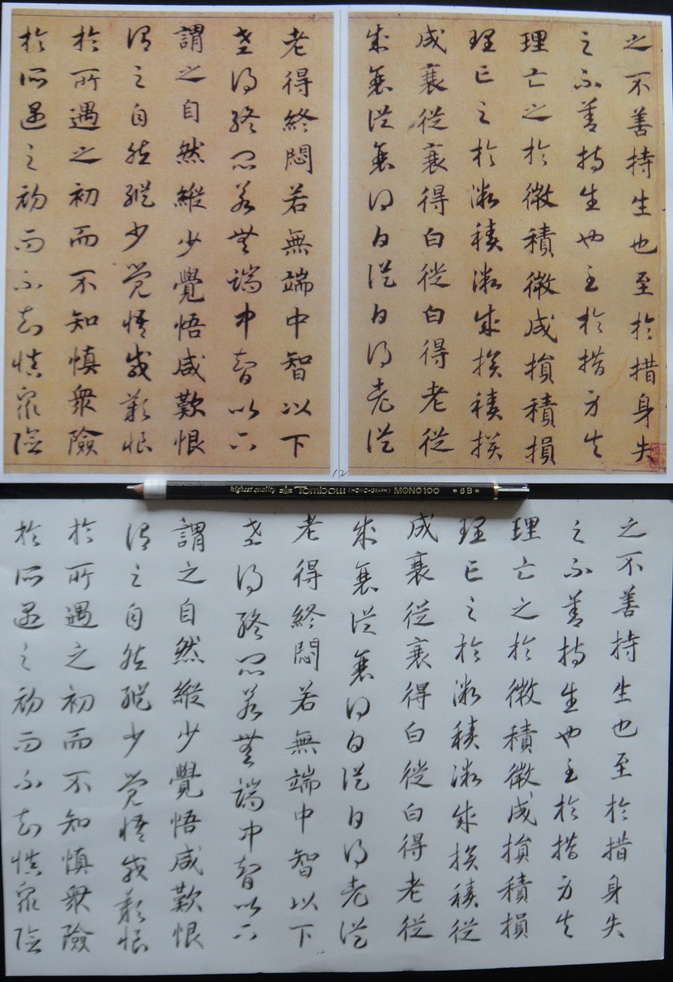 之不善持生也至於措身失
之不善持生也至於措身失
理亡之於微積微成損積損
理亡之於微積微成損積損
成衰從衰得白從白得老從
成衰從衰得白從白得老從
老得終悶若無端中智以下
老得終悶若無端中智以下
謂之自然縱少覺悟咸歎恨
謂之自然縱少覺悟咸歎恨
於所遇之初而不知慎衆險
於所遇之初而不知慎衆險
12
highest quality Tombow MONO100 6B
之不善持生也至於措身失
之不善持生也至於措身失
理亡之於微積微成損積損
理亡之於微積微成損積損
成衰從衰得白從白得老從
成衰從衰得白從白得老從
老得終悶若無端中智以下
老得終悶若無端中智以下
謂之自然縱少覺悟咸歎恨
謂之自然縱少覺悟咸歎恨
於所遇之初而不知慎衆險
於所遇之初而不知慎衆險